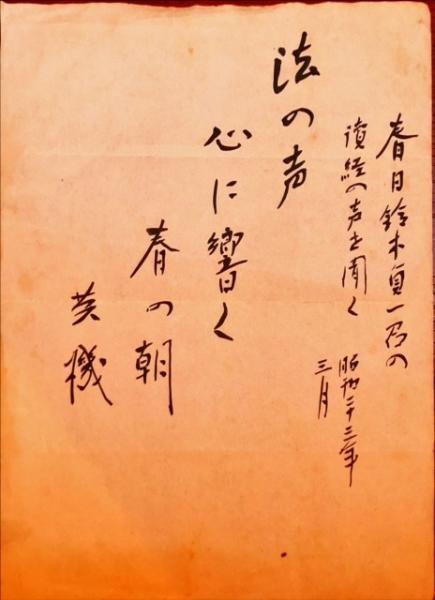 春日鈴木貞一君の
読経の声を聞く
昭和二十三年
三月
法の声
心に響く
春の朝
英機